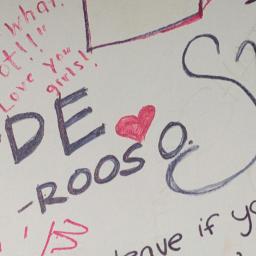 what
ot!!"
Love you
girls!
DE ♥
-ROOSO.
leave if yo